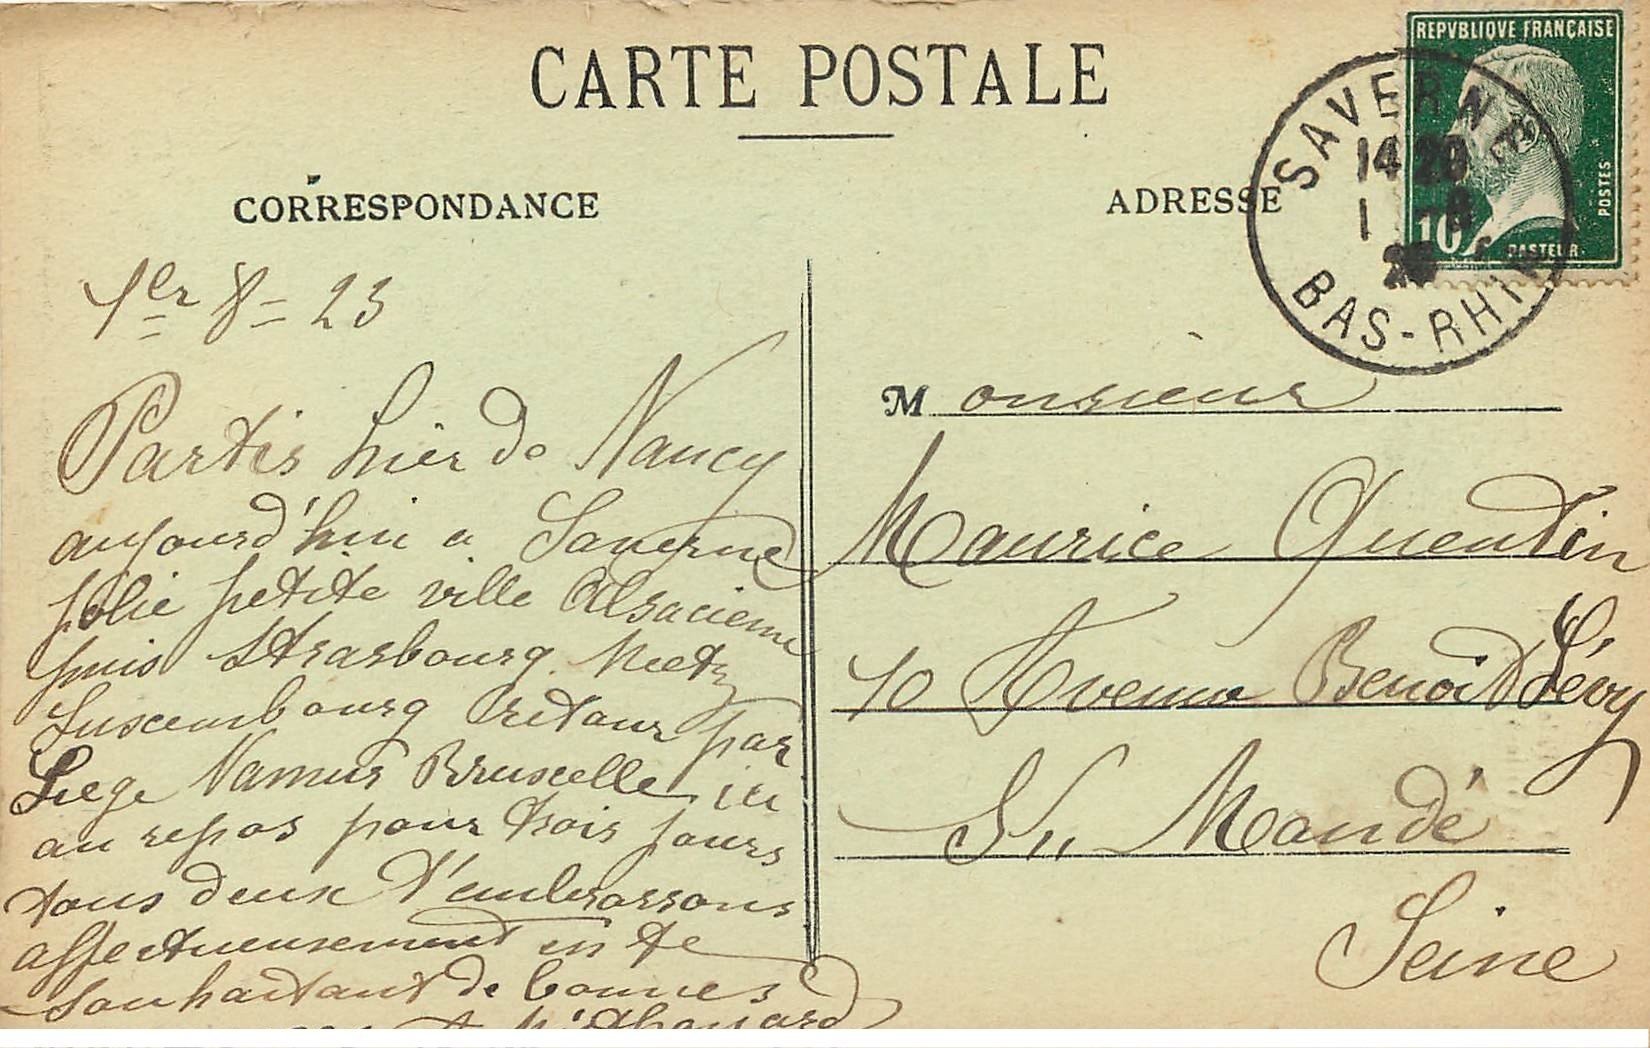 CARTE POSTALE
CORRESPONDANCE
ADRESSE
REPVBLIQVE FRANÇAISE
POSTES
10c
PASTEUR
SAVERNE
14 20
1 - 8
BAS-RHIN
1er 8 = 23
Partis hier de Nancy
aujourd'hui a Saverne
jolie petite ville Alsacienne
puis Strasbourg Metz
Luxembourg retour par
Liege Namur Bruxelle ici
au repos pour trois jours
tous deux t'embrassons
affectueusement en te
souhaitant de bonnes
Monsieur
Maurice Quentin
10 Avenue Benoit Lévy
St Mandé
Seine